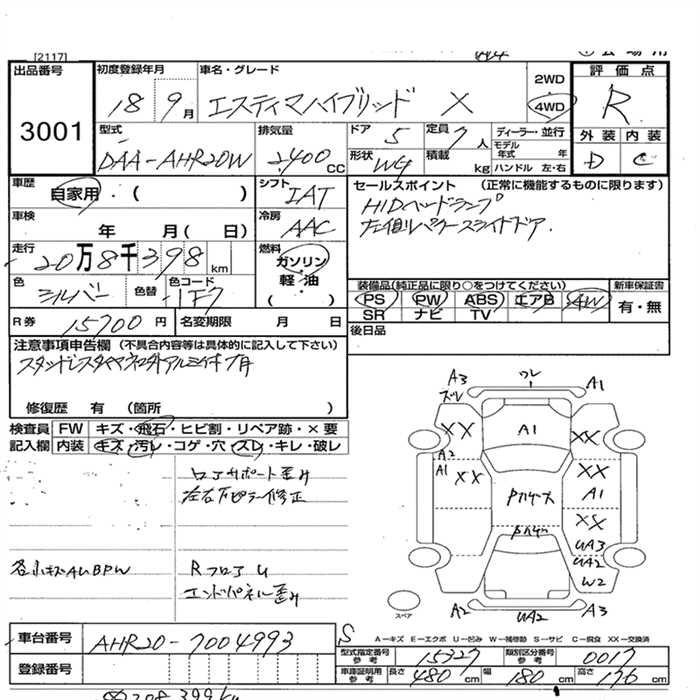 [2117]
出品番号 3001
初度登録年月 18 9月
車名・グレード エスティマハイブリッド X
2WD
4WD
評価点 R
外装 内装
D C
型式 DAA-AHR20W
排気量 2400 CC
ドア 5
定員 7人
形状 W4
積載 kg
ディーラー・並行
モデル年式 年
ハンドル 左・右
車歴 自家用・( )
シフト IAT
車検 年 月( 日)
冷房 AAC
走行 20万8千398km
燃料 ガソリン・軽油 ( )
色 シルバー
色替
色コード 1F7
R券 15700円
名変期限 月 日
セールスポイント (正常に機能するものに限ります)
HIDヘッドランプ
左側パワースライドドア.
装備品(純正品に限り○をつけてください)
新車保証書
PS PW ABS エアB AW
SR ナビ TV
有・無
後日品
注意事項申告欄 (不具合内容等は具体的に記入して下さい)
修復歴 有 (箇所 )
検査員 FW キズ・飛石・ヒビ割・リペア跡・×要
記入欄 内装 キズ・汚レ・コゲ・穴・スレ・キレ・破レ
左右 ピラー修正
各小キズAUBPW
Rフロア U
エンドパネル歪み
A3 ワレ A1
ズレ
XX A1 XX
A2
A1 XX XX
A1
XX
UA3
UA2
W2
スペア
A2 UA2 A3
S
A—キズ E—エクボ U—凹み W—補修跡 S—サビ C—腐食 XX—交換済
車台番号 AHR20-7004993
登録番号
型式指定番号 参考 15327
類別区分番号 参考 0017
車庫証明用 参考 長さ 480cm 幅 180cm 高さ 176cm